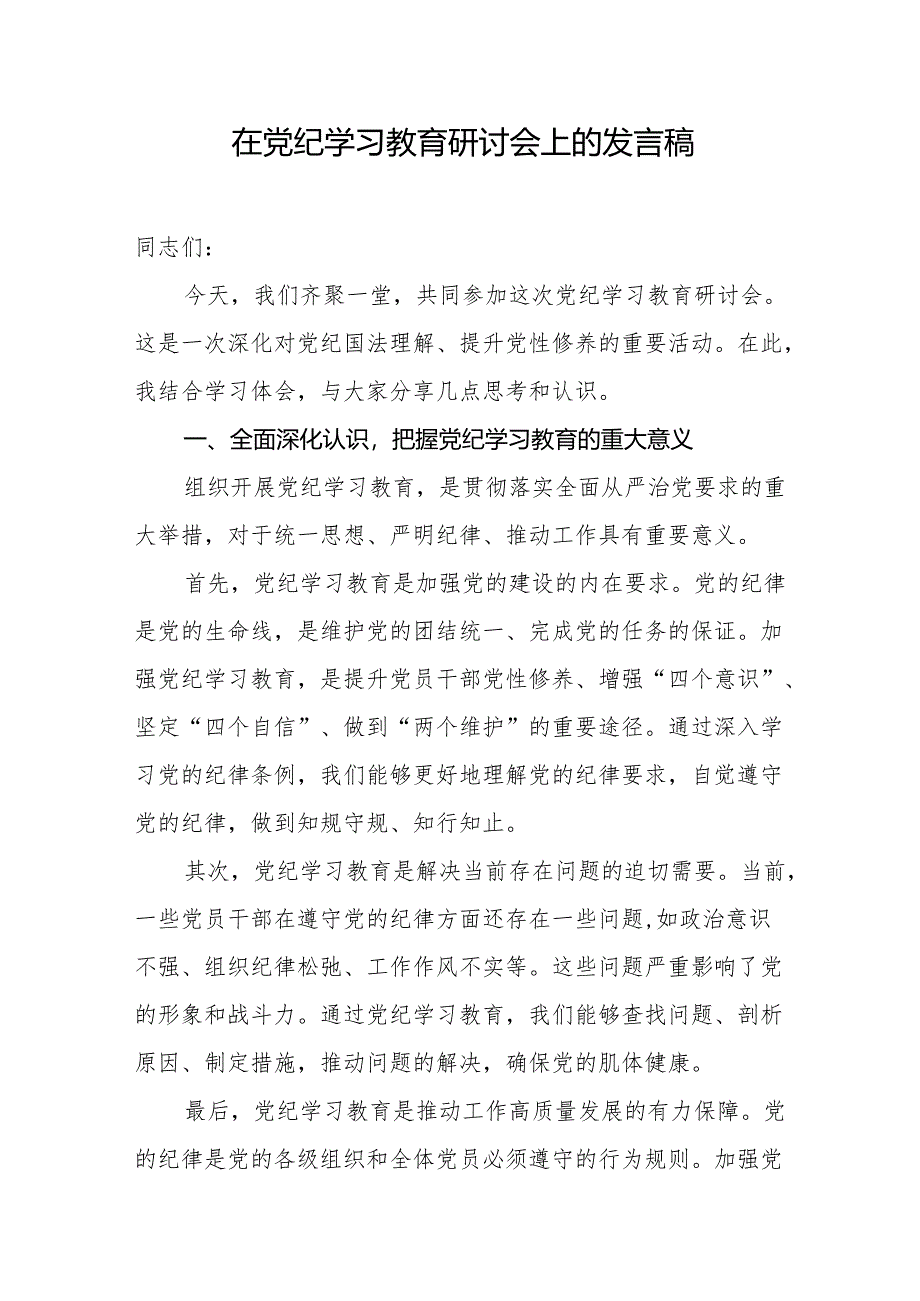 在党纪学习教育研讨会上的发言稿
同志们：
今天，我们齐聚一堂，共同参加这次党纪学习教育研讨会。
这是一次深化对党纪国法理解、提升党性修养的重要活动。在此，
我结合学习体会，与大家分享几点思考和认识。
一、全面深化认识，把握党纪学习教育的重大意义
组织开展党纪学习教育，是贯彻落实全面从严治党要求的重
大举措，对于统一思想、严明纪律、推动工作具有重要意义。
首先，党纪学习教育是加强党的建设的内在要求。党的纪律
是党的生命线，是维护党的团结统一、完成党的任务的保证。加
强党纪学习教育，是提升党员干部党性修养、增强“四个意识”、
坚定“四个自信”、做到“两个维护”的重要途径。通过深入学
习党的纪律条例，我们能够更好地理解党的纪律要求，自觉遵守
党的纪律，做到知规守规、知行知止。
其次，党纪学习教育是解决当前存在问题的迫切需要。当前，
一些党员干部在遵守党的纪律方面还存在一些问题,如政治意识
不强、组织纪律松弛、工作作风不实等。这些问题严重影响了党
的形象和战斗力。通过党纪学习教育，我们能够查找问题、剖析
原因、制定措施，推动问题的解决，确保党的肌体健康。
最后，党纪学习教育是推动工作高质量发展的有力保障。党
的纪律是党的各级组织和全体党员必须遵守的行为规则。加强党